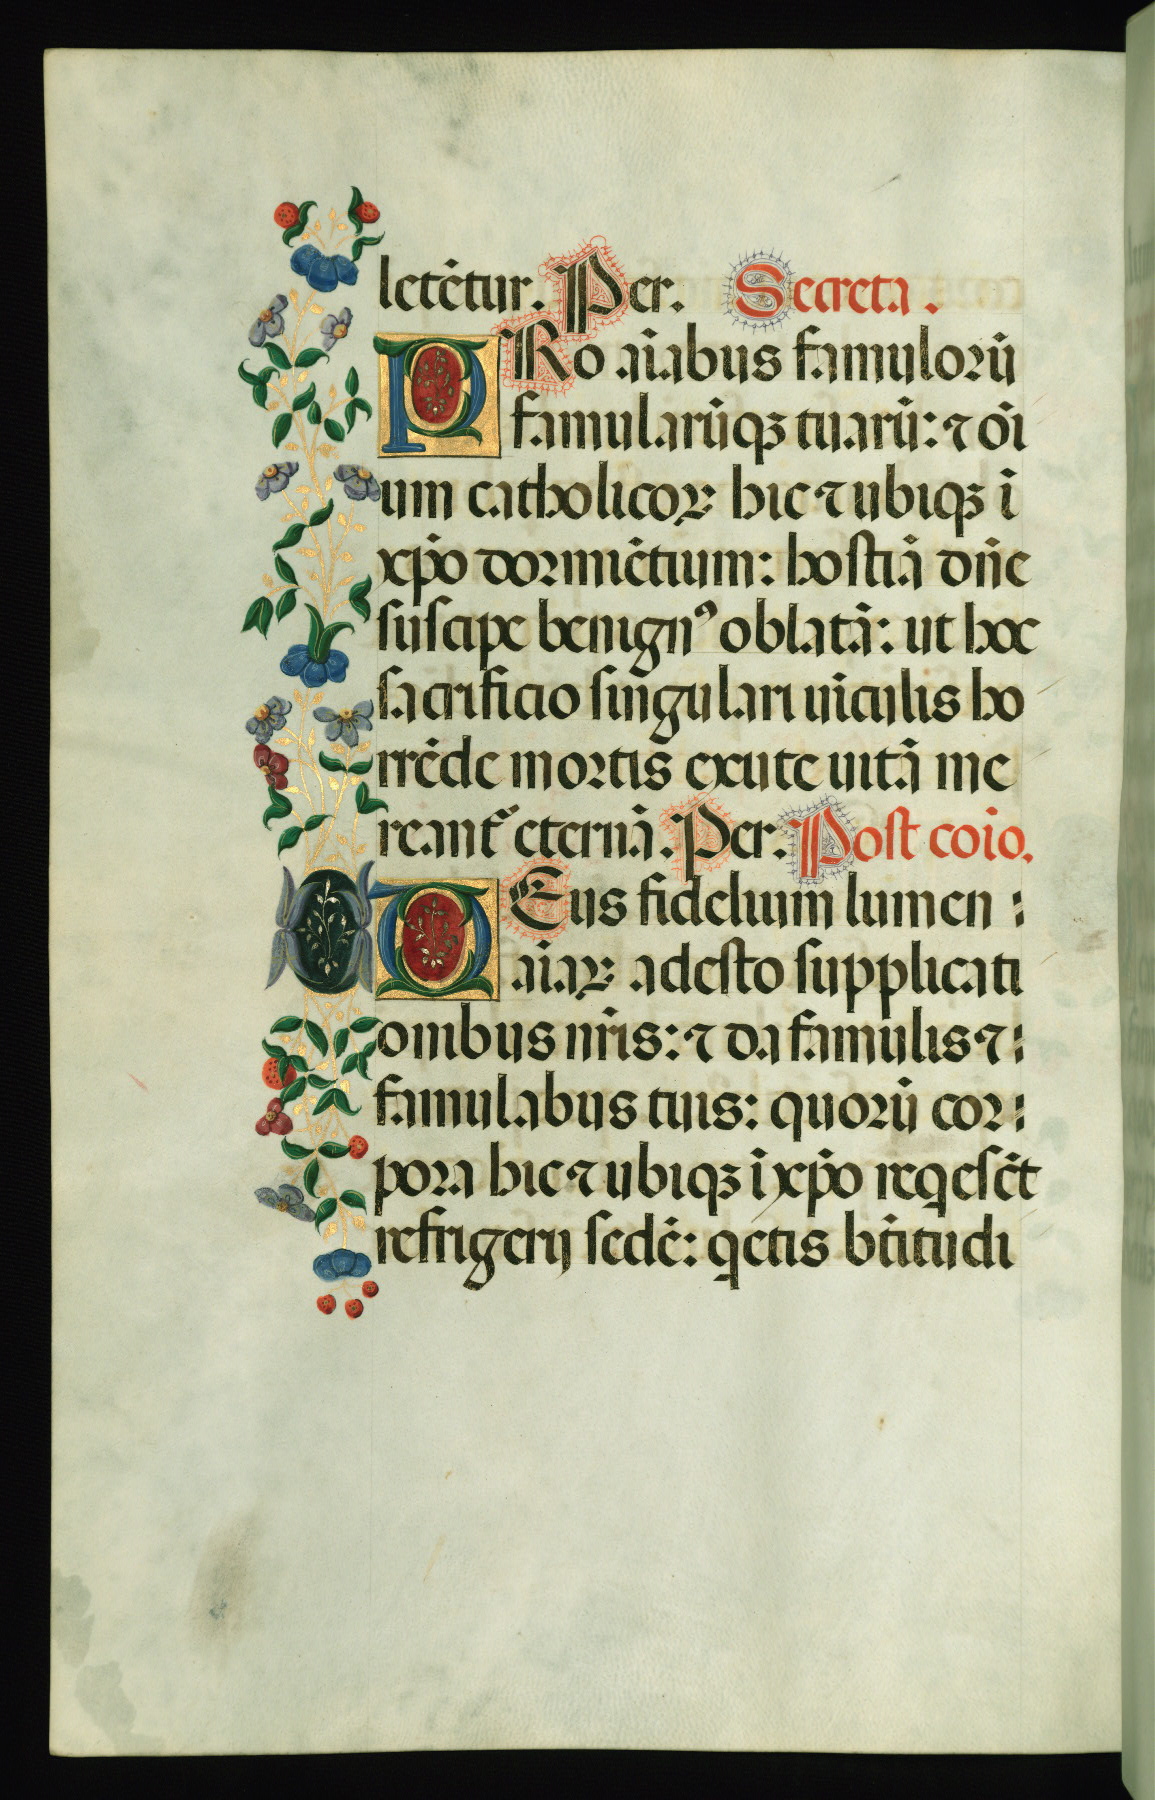 letētur. Per. Secreta.
PRo aīabus famulorū
famularūqꝫ tuarū: ⁊ oī
um catholicoꝝ hic ⁊ ubiqꝫ ī
xp̄o dormiētium: hostiā dn̄e
suscipe benignꝰ oblatā: ut hoc
sacrificio singulari uīculis ho
rrēde mortis exute uitā me
reant᷑ eternā. Per. Post coīo.
DEus fidelium lumen :
aīaꝝ adesto supplicati
onibus nr̄is: ⁊ da famulis ⁊ :
famulabus tuis: quorū cor :
pora hic ⁊ ubiqꝫ ī xp̄o reqescēt
refrigerij sedē: qetis bt̄itudi